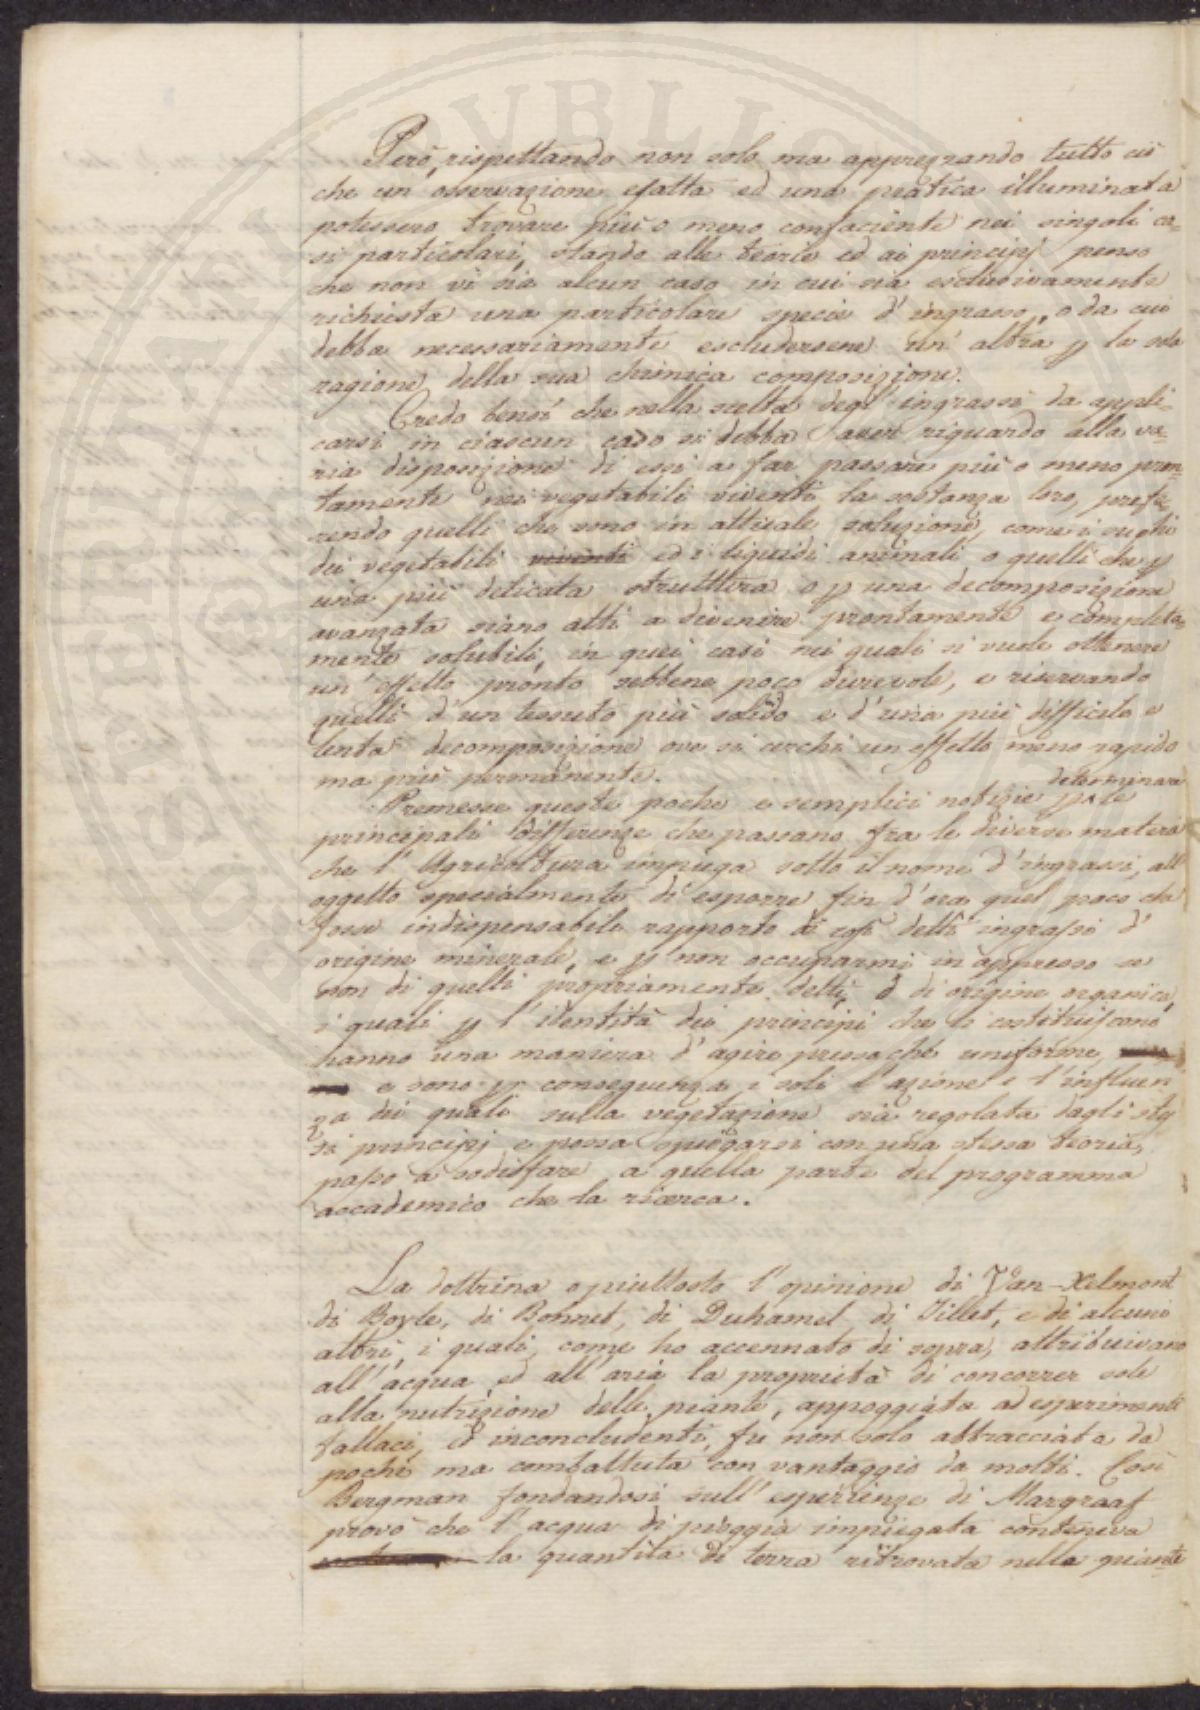 Però, rispettando non solo ma apprezzando tutto ciò
che un osservazione esatta ed una pratica illuminata
potessero trovare più o meno confaciente nei singoli ca-
si particolari, stando alle teorie ed ai principj penso
che non vi sia alcun caso in cui sia esclusivamente
richiesta una particolare specie d'ingrasso, o da cui
debba necessariamente escludersene un'altra p la sola
ragione della sua chimica composizione.
Credo bensì che nella scelta degl'ingrassi da appli-
carsi in ciascun caso si debba aver riguardo alla va-
ria disposizione di essi a far passare più o meno pron-
tamente nei vegetabili viventi la sostanza loro, prefe-
rendo quelli che sono in attuale soluzione, come i sughi
dei vegetabili viventi ed i liquidi animali o quelli che p
una più delicata struttura o p una decomposizione
avanzata siano atti a divenire prontamente e completa-
mente solubili, in quei casi nei quali si vuole ottenere
un'effetto pronto sebbene poco durevole, e riservando
quelli d'un tessuto più solido e d'una più difficile e
lenta decomposizione ove si cerchi un effetto meno rapido
ma più permanente.
Premesse queste poche e semplici notizie p determinare le
principali differenze che passano fra le diverse materie
che l'Agricoltura impiega sotto il nome d'ingrassi, all'
oggetto specialmente di esporre fin d'ora quel poco che
fosse indispensabile rapporto ai così detti ingrassi d'
origine minerale, e p non occuparmi in appresso se
non di quelli propriamente detti, o di origine organica,
i quali p l'identità dei principj che li costituiscono
hanno una maniera d'agire pressoché uniforme,
e sono p conseguenza i soli l'azione e l'influen
za dei quali sulla vegetazione sia regolata dagli stes
si principj e possa spiegarsi con una stessa teoria,
passo a sodisfare a quella parte del programma
accademico che la ricerca.
La dottrina o piuttosto l'opinione di Van-Helmont
di Boyle, di Bonnet, di Duhamel, di Tillet, e di alcuno
altri, i quali, come ho accennato di sopra, attribuivano
all'acqua ed all'aria la proprietà di concorrer sole
alla nutrizione delle piante, appoggiata ad esperimenti
fallaci, ed inconcludenti, fu non solo abbracciata da
pochi ma combattuta con vantaggio da molti. Così
Bergman fondandosi sull'esperienze di Margraaf
provò che l'acqua di pioggia impiegata conteneva
la quantità di terra ritrovata nelle piante